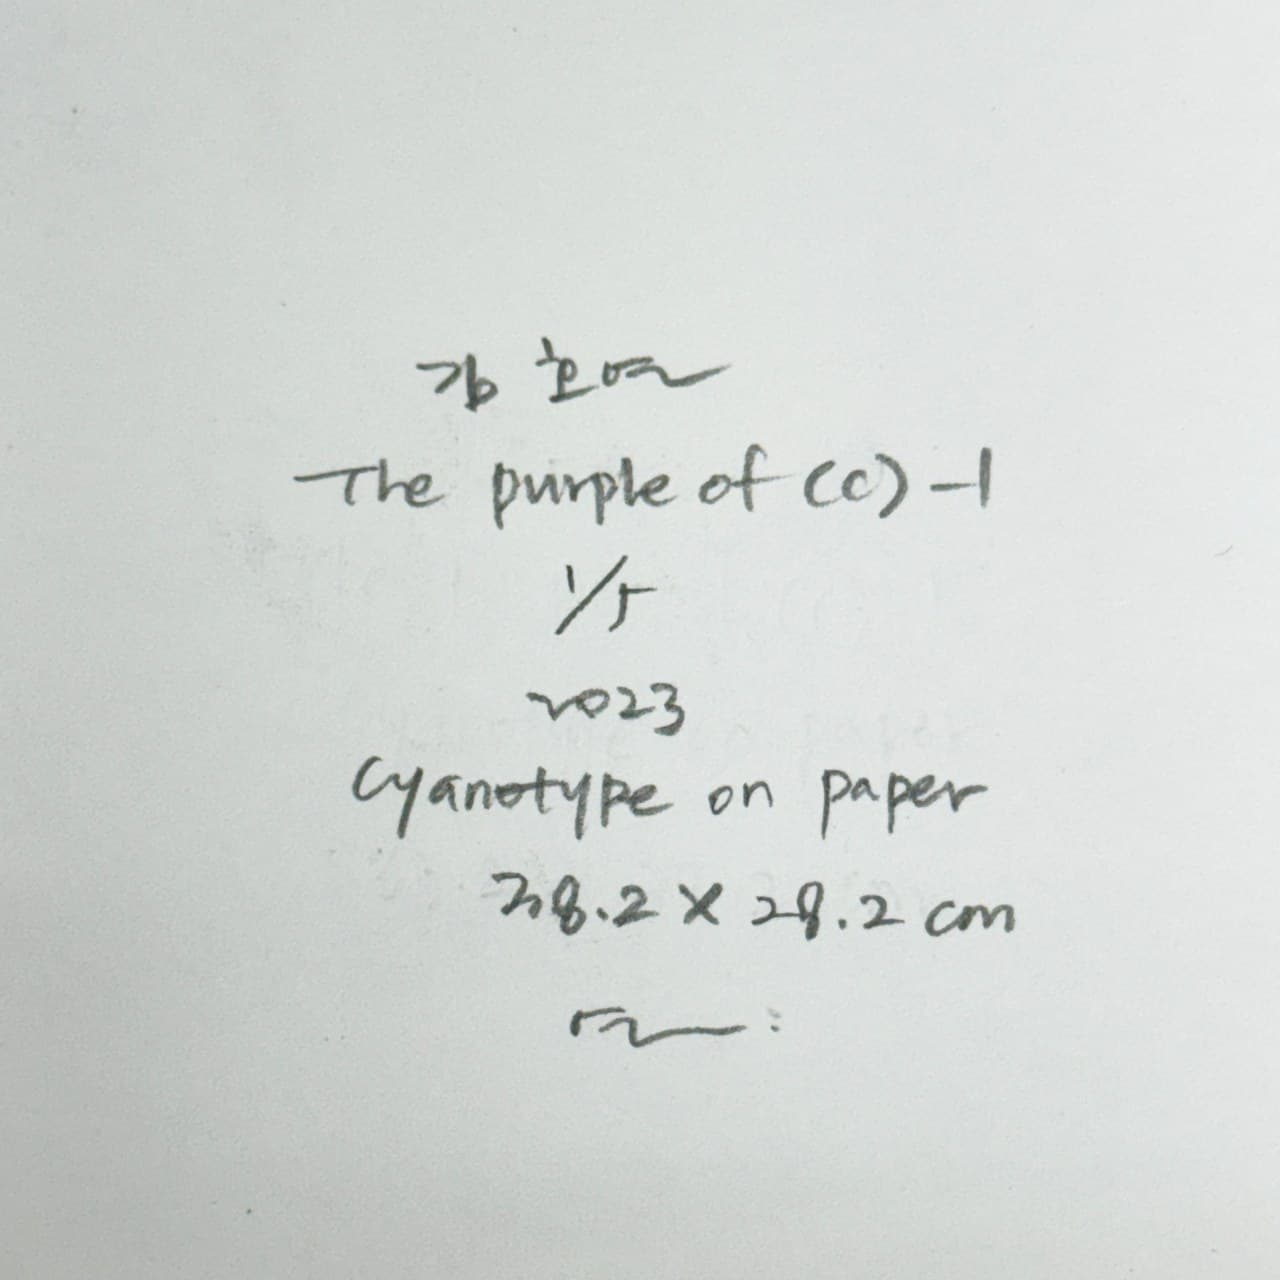 김
The purple of (c) -1
1/5
2023
Cyanotype on paper
38.2 x 28.2 cm